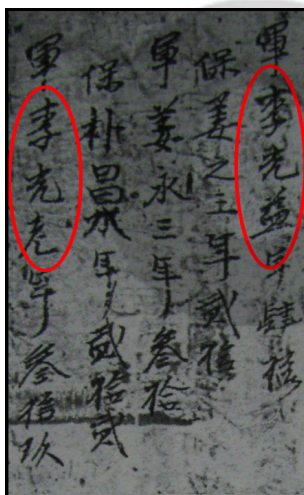 軍李光益年肆拾
保姜之主年貳拾
軍姜永三年叁拾
保朴昌水年貳拾貳
軍李光老年叁拾玖